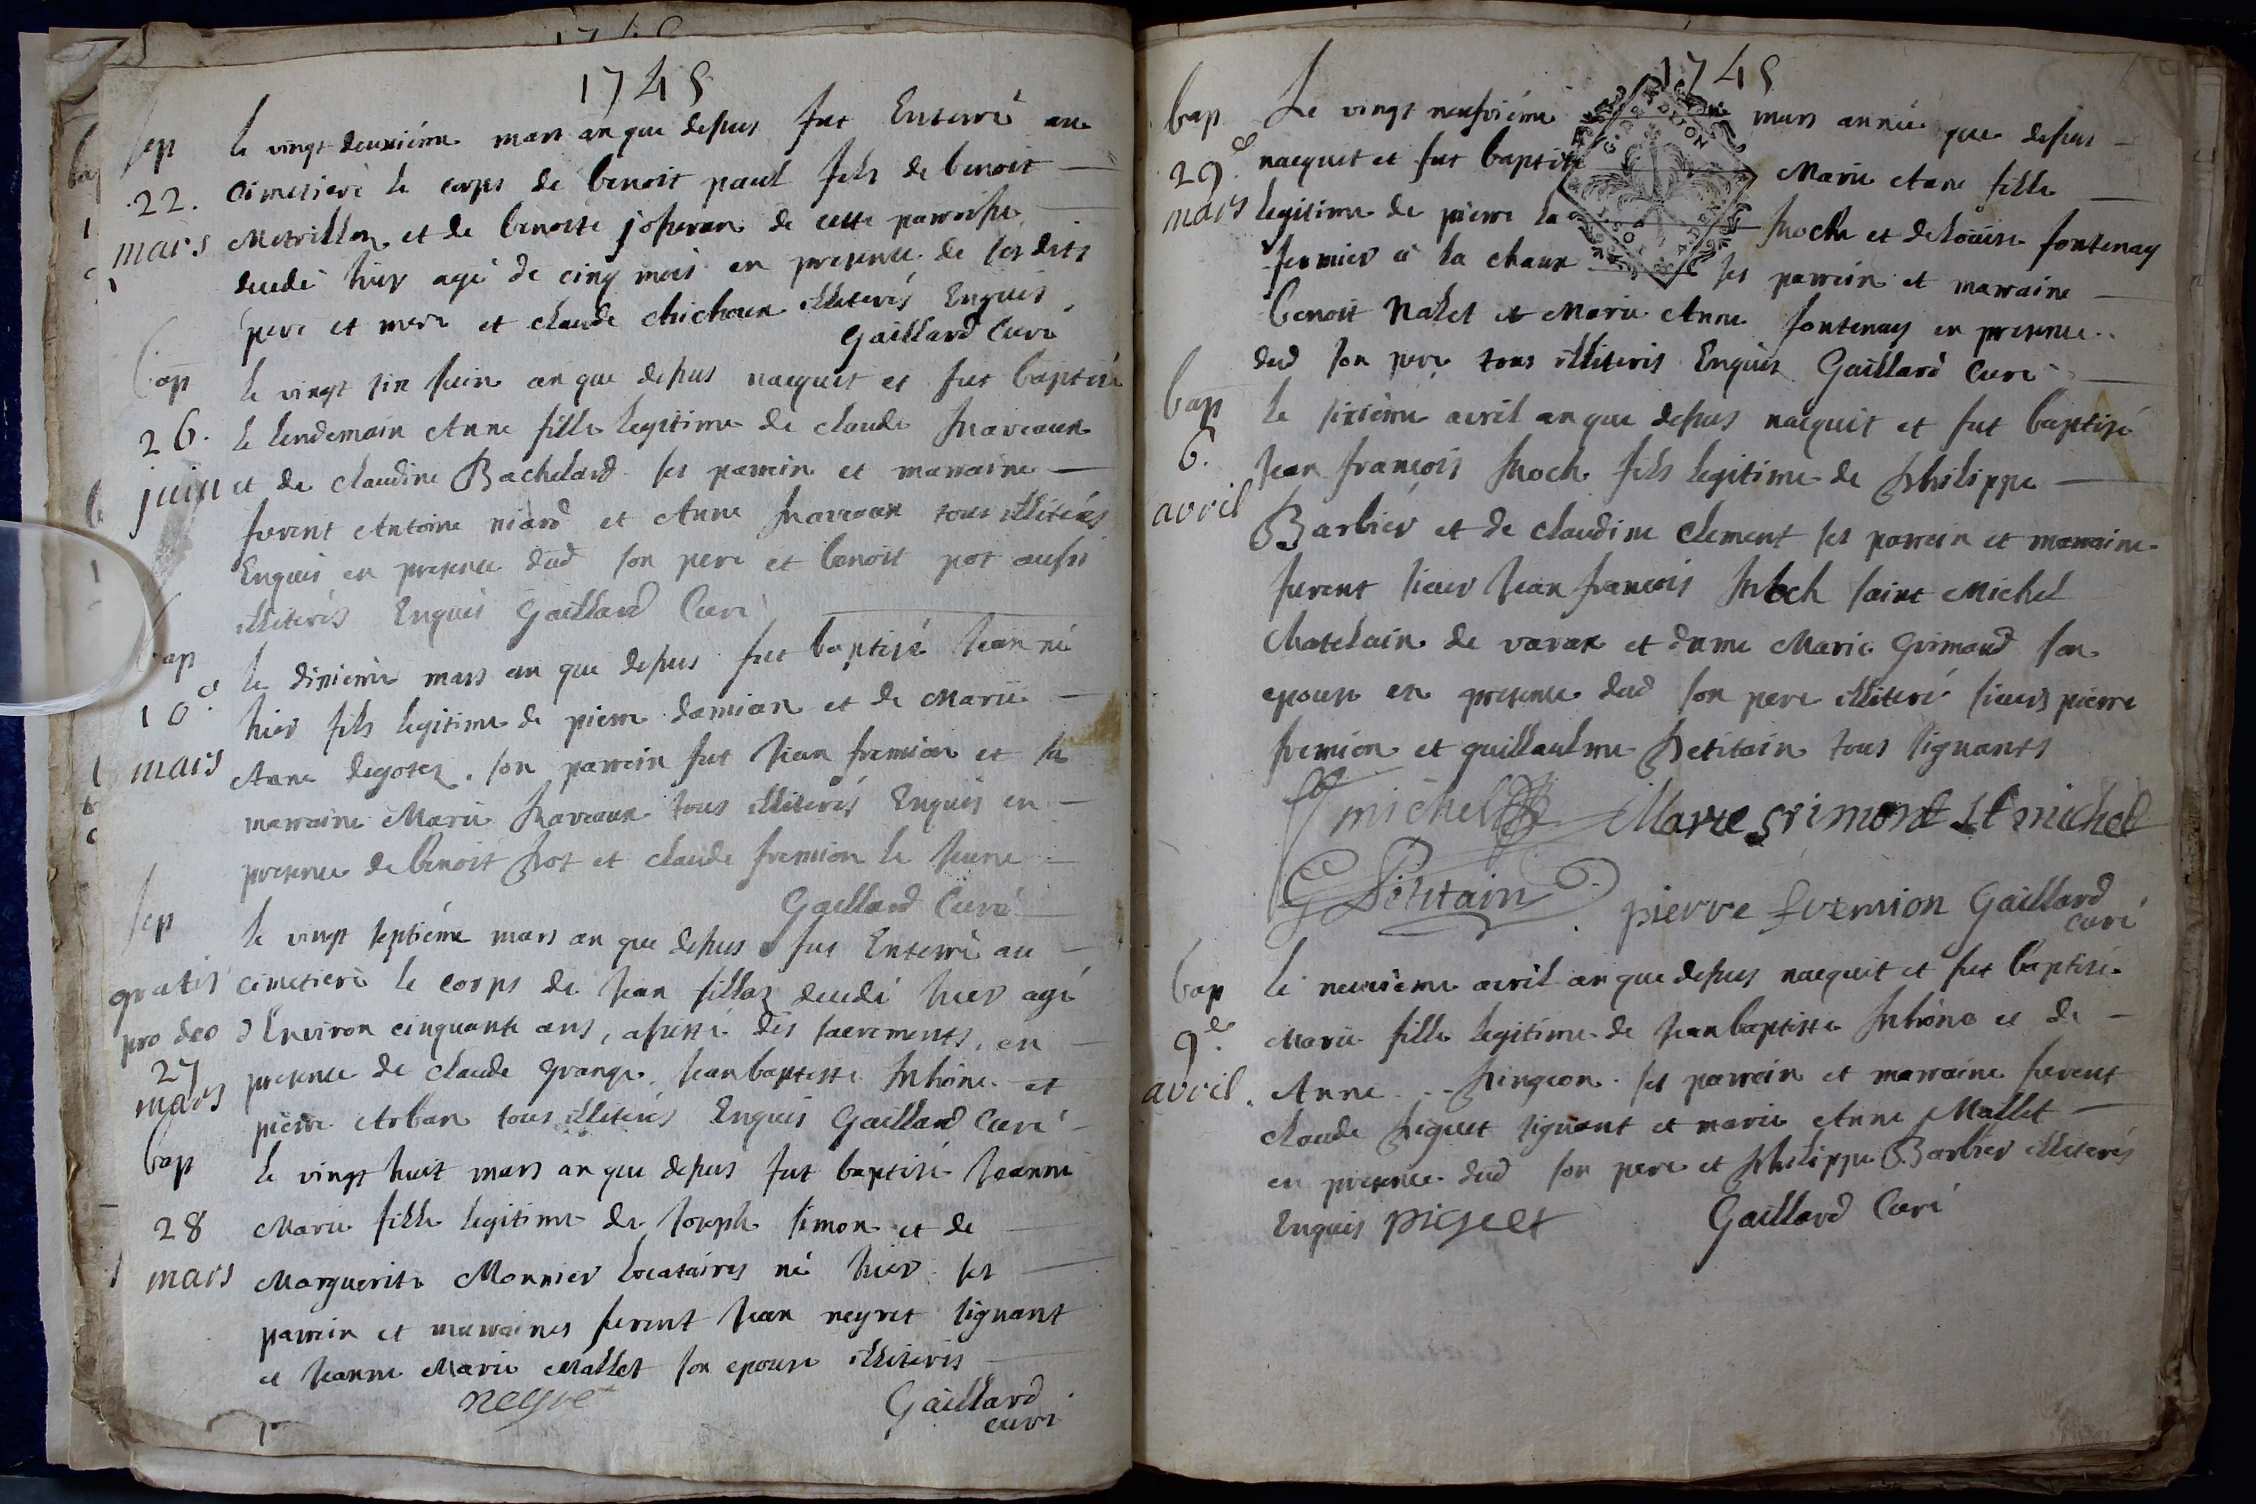 1745
sep
22.
mars
le vingt deuxiéme mars an que depus fut Enterré au
cimetiere le corps de benoit paul fils de benoit
Metrillon et de benoite josseran de cette parroisse
decedé hier agé de cinq mois en presence de ses dits
pere et mere et claude chichoux illiterés Enquis
Gaillard Curé
bap
26.
juin
le vingt six juin an que depus nacquit et fut baptisé
le lendemain Anne fille legitime de claude Praveaux
et de claudine Bachelard ses parrein et marraine
furent Antoine niard et Anne Praveaux tous illiterés
Enquis en presence dud son pere et benoit pot aussi
illiterés Enquis Gaillard Curé
bap
10e
mars
le dixieme mars an que depus fut baptisé Jean né
hier fils legitime de pierre damian et de Marie
Anne degotez. son parrein fut Jean fremion et sa
marraine Marie Praveaux tous illiterés Enquis en
presence de benoit Pot et claude fremion le Jeune
Gaillard Curé
sep
gratis
pro deo
27
mars
le vingt septiéme mars an que depus fut Enterré au
cimetiere le corps de Jean fillaz decedé hier agé
d'Environ cinquante ans, assisté des sacrements, en
presence de claude grange, Jean baptiste Rhône et
pierre Arban tous illiterés Enquis Gaillard Curé
bap
28
mars
le vingt huit mars an que depus fut baptisé Jeanne
Marie fille legitime de Joseph simon et de
Marguerite Monnier locataires né hier ses
parrein et marraines furent Jean neyret signant
et Jeanne Marie Mallet son epouse illiteris
neyret
Gaillard
curé
1745
bap
29e
mars
Le vingt neufviéme mars année que depus
nacquit et fut baptisé Marie Anne fille
legitime de pierre la Roche et de Louise fontenay
fermier à la chaux ses parrein et marraine
benoit Nalet et Marie Anne fontenay en presence
dud son pere tous illiteris Enquis Gaillard Curé
bap
6.
avril
le sixiéme avril an que depus nacquit et fut baptisé
Jean françois Roch fils legitime de Philippe
Barbier et de claudine Clement ses parrein et marraine
furent sieur Jean françois Roch saint Michel
Chatelain de varax et dame Marie Grimaud son
epouse en presence dud son pere illiteré sieurs pierre
fremion et guillaulme Petitain tous signants
St michel
Marie grimont St michel
G Petitain
pierre fremion
Gaillard
curé
bap
9e
avril.
le neuvieme avril an que depus nacquit et fut baptisé
Marie fille legitime de Jean baptiste Rhône et de
Anne Pingeon. ses parrein et marraine furent
claude Piguet signant et marie Anne Mallet
en presence dud son pere et Philippe Barbier illiterés
Enquis piguet
Gaillard Curé